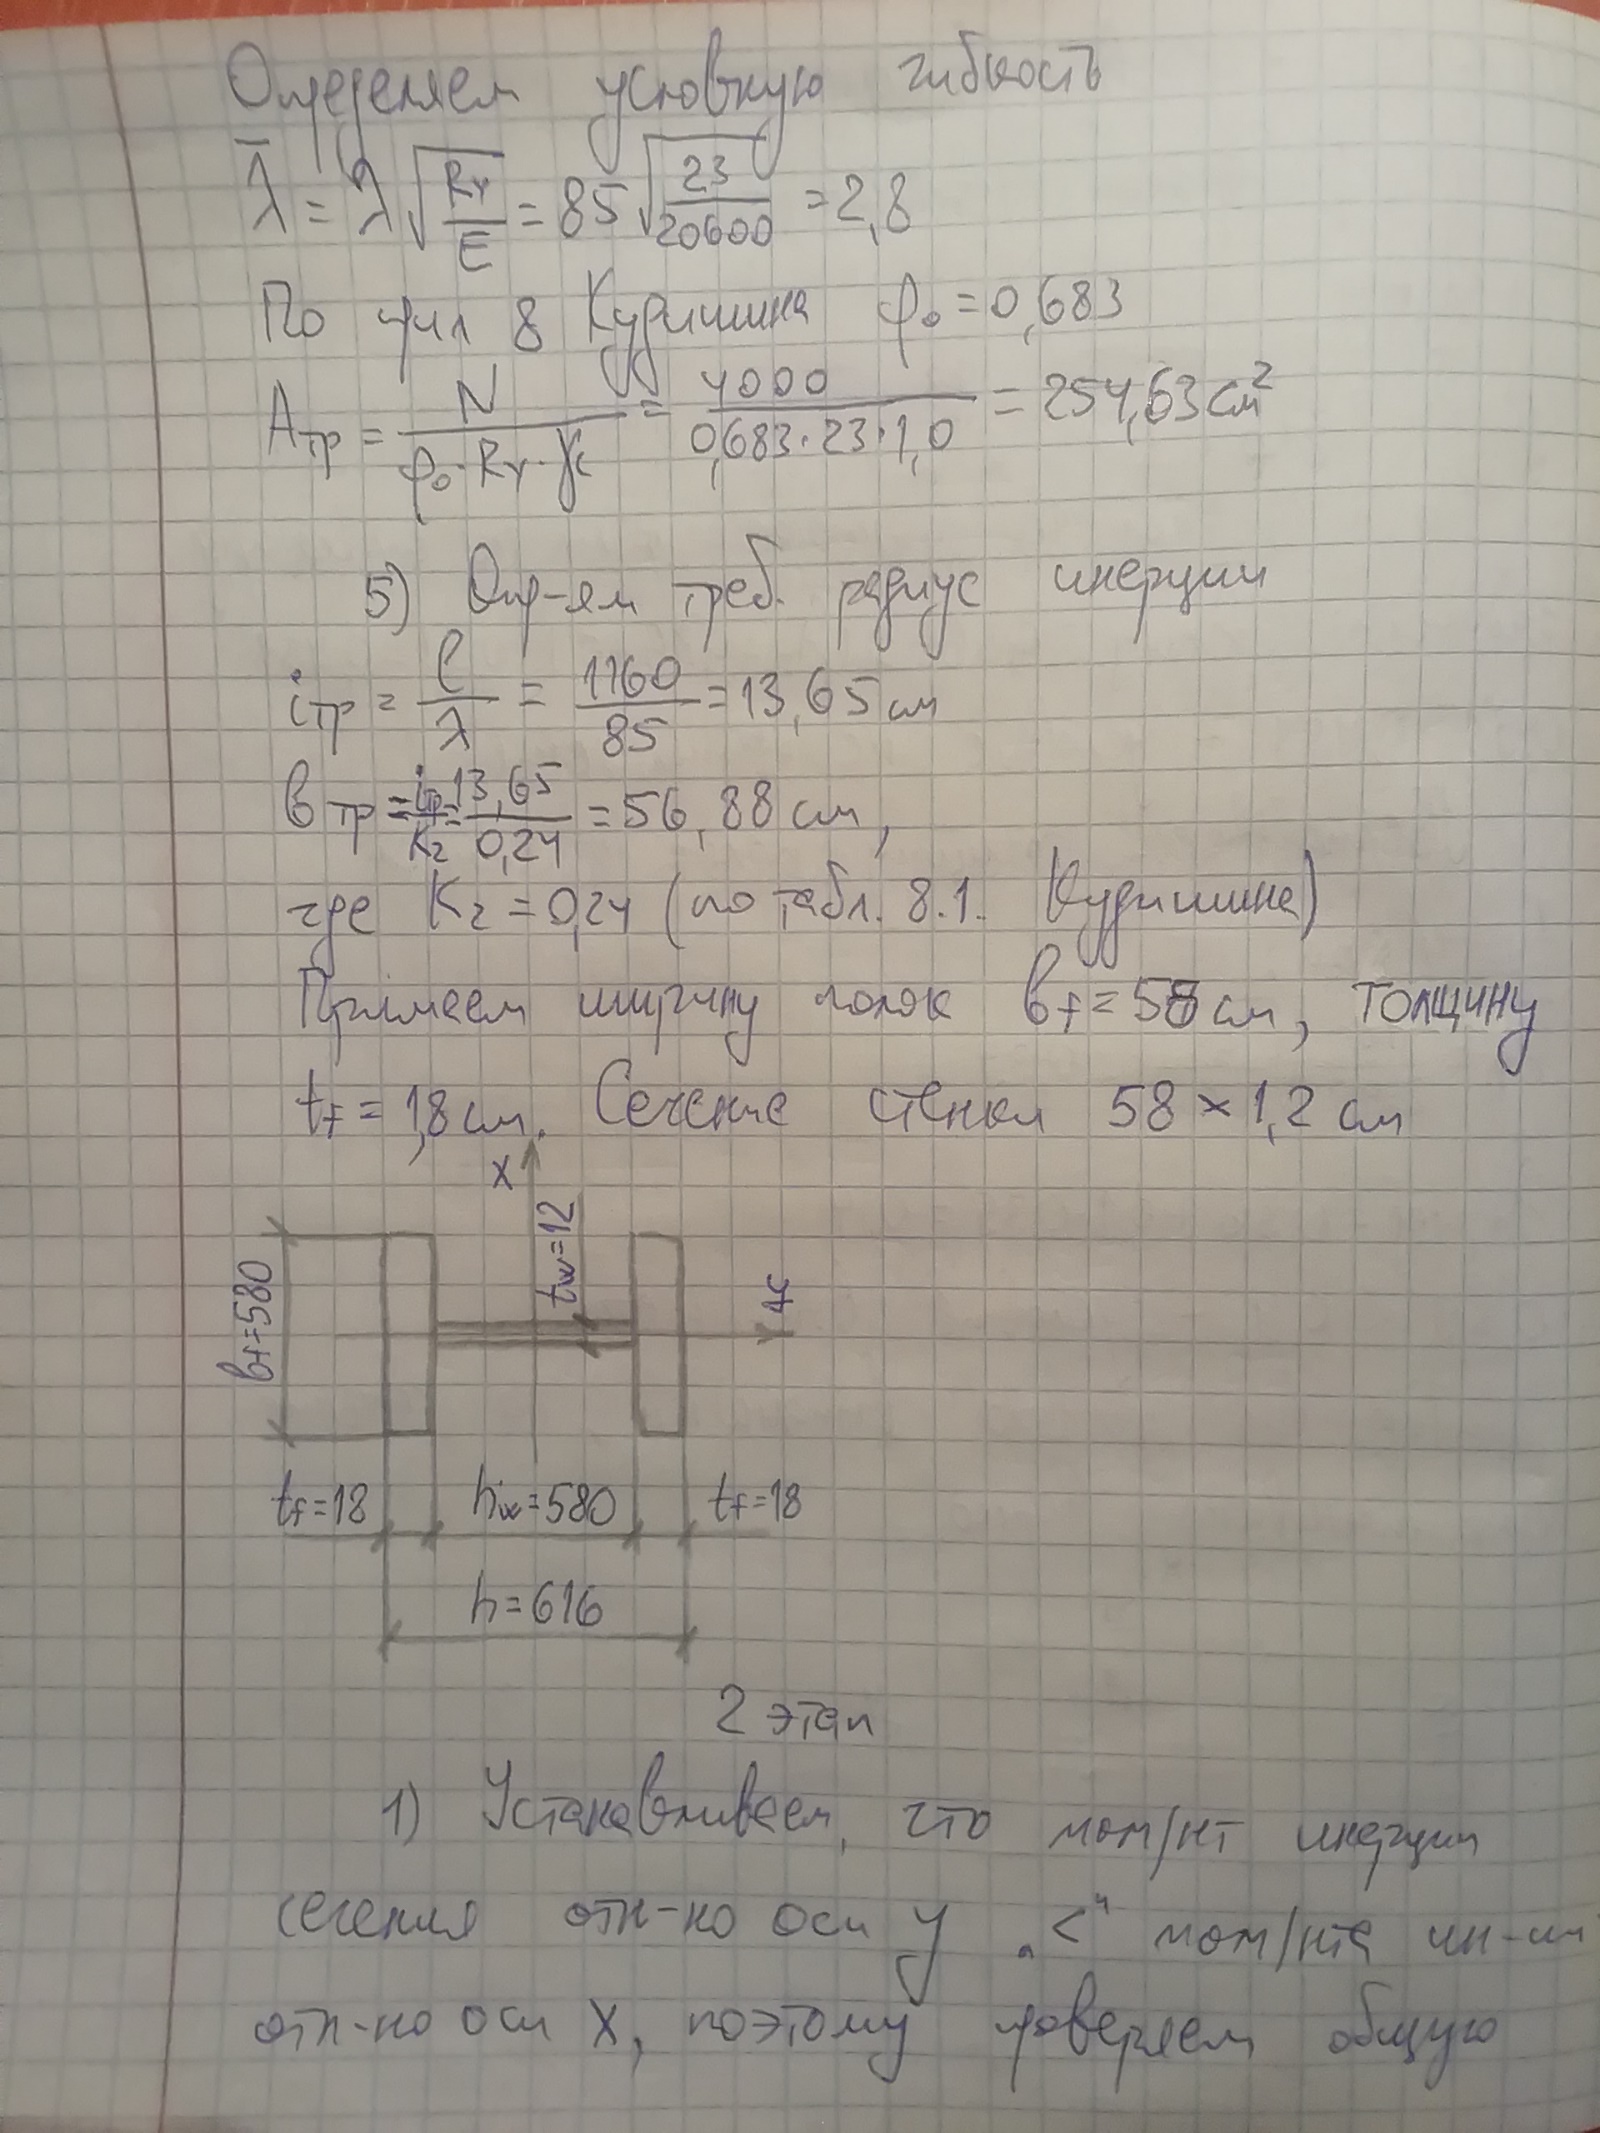 Определяем условную гибкость
λ̅ = λ √(Rу/E) = 85 √(23/20600) = 2,8
По прил 8 Кудишина φ₀ = 0,683
Атр = N/(φ₀·Rу·γc) = 4000/(0,683·23·1,0) = 254,63 см²
5) Опр-ем треб. радиус инерции
iтр = l/λ = 1160/85 = 13,65 см
bтр = iтр/K₂ = 13,65/0,24 = 56,88 см,
где K₂ = 0,24 (по табл. 8.1. Кудишина)
Принимаем ширину полок bf = 58 см, толщину
tf = 1,8 см. Сечение стенки 58 × 1,2 см
x
tw=12
y
bf=580
tf=18 hw=580 tf=18
h=616
2 этап
1) Устанавливаем, что мом/нт инерции
сечения отн-но оси y „<" мом/нта ин-ии
отн-но оси x, поэтому проверяем общую